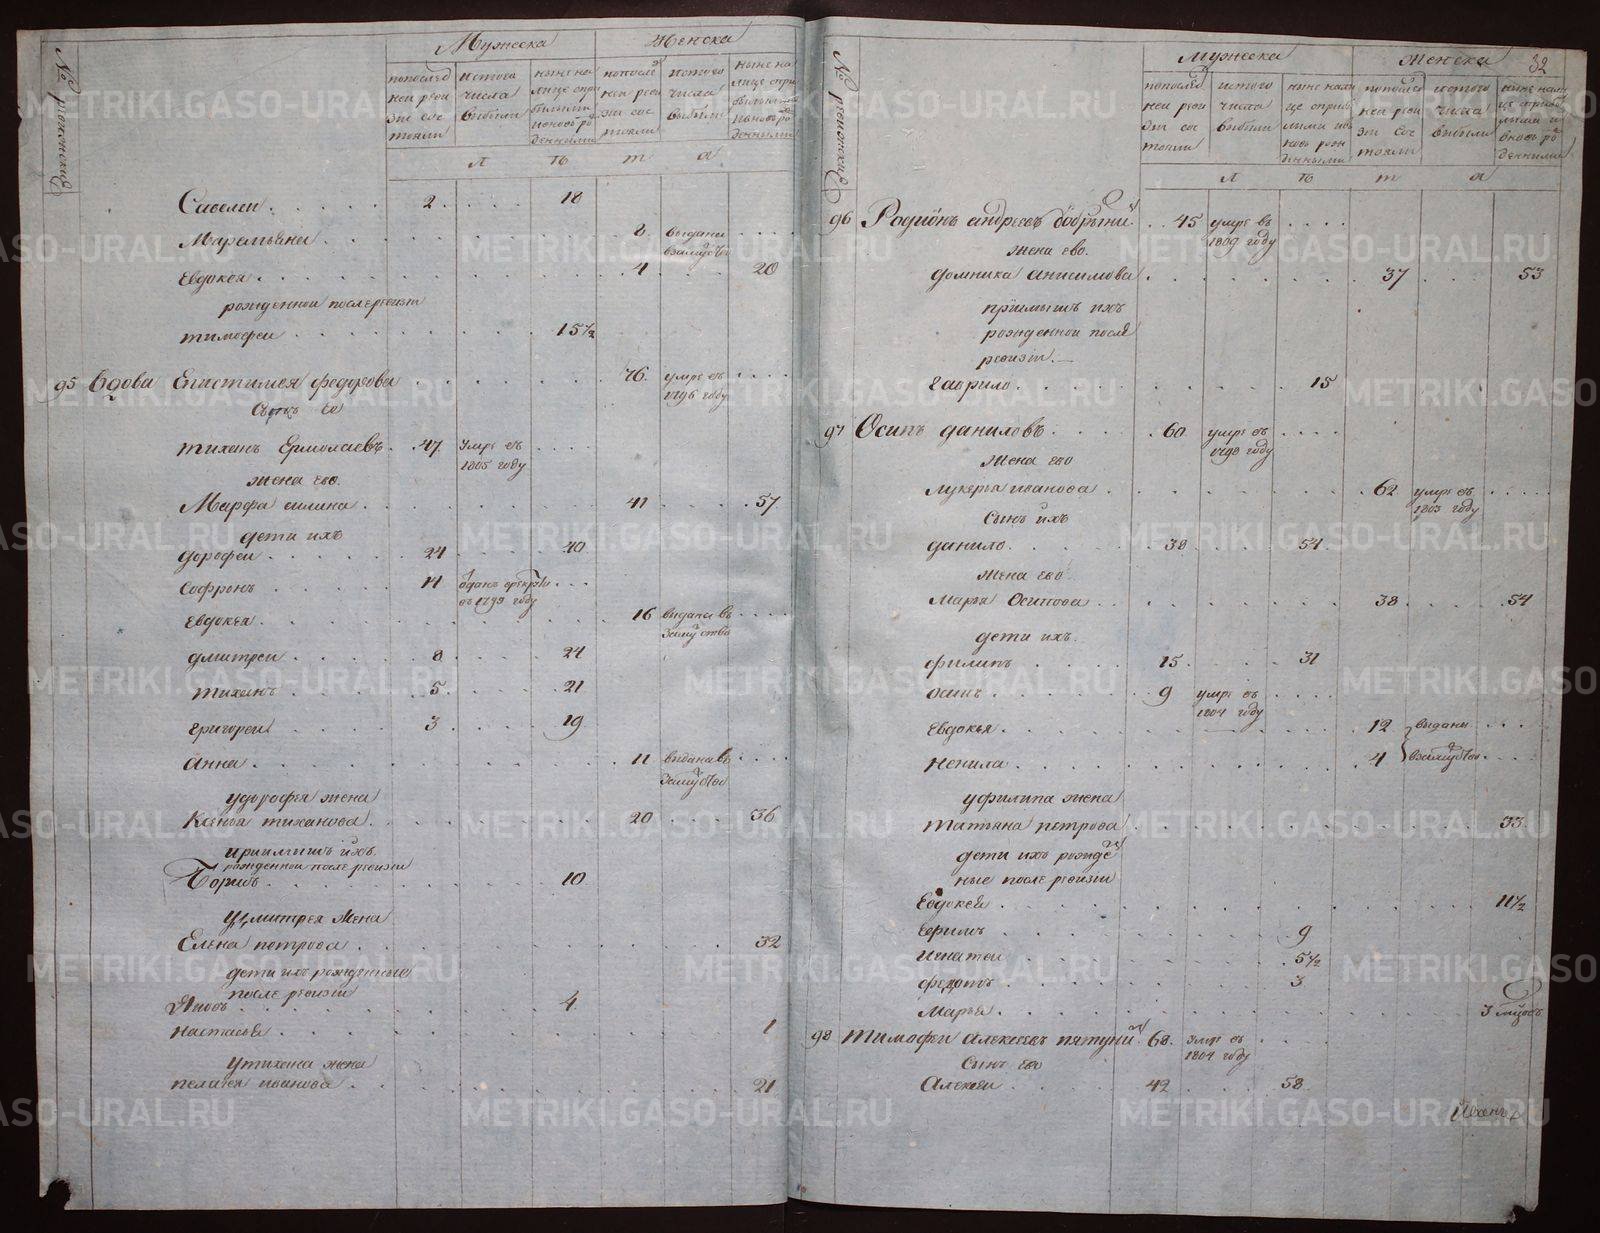 № ревижския
Мужеска
Женска
попослед
ней реви
зіи сос
тояли
истого
числа
выбыли
ныне на
лице сприбылыми
попосле
ней реви
зіи сос
тояли
истого
числа
выбыли
ныне на
лице
л ѣ т а
Савелеи 2 18
Маремьяна 8 выдана взамуство
Евдокея 4 20
рожденнои послеревизіи
тимофеи 15 1/2
95 вдова Епистимея федорова 76 умре въ 1796 году
Сынъ Ее
тихонъ Ермолаевъ 47 умре въ 1805 году
жена ево
Марфа 41 57
дети ихъ
дорофеи 24 40
софронъ 14 въ 1799 году
Евдокея 16 выдана въ замуство
дмитреи 8 24
тихонъ 5 21
григореи 3 19
анна 11 выдана въ замуство
у дорофея жена
Ксенья тиханова 20 36
приимышъ ихъ
рожденнои после ревизіи
Борисъ 10
у дмитрея жена
Елена петрова 32
дети ихъ рожденные
после ревизіи
Яковъ 4
настасья 1
у тихона жена
пелагея иванова 21
№ ревижския
Мужеска
Женска
32
попослед
ней реви
зіи сос
тояли
истого
числа
выбыли
ныне нали
це
попослед
ней реви
зіи сос
тояли
истого
числа
выбыли
ныне нали
це
л ѣ т а
96 Родионъ андреевъ 45 умре въ 1809 году
жена ево
домника анисимова 37 53
приимышъ ихъ
рожденнои после
ревизіи
гаврило 15
97 Осипъ даниловъ 60 умре въ 1798 году
жена ево
лукерья иванова 62 умре въ 1803 году
сынъ ихъ
данило 38 54
жена ево
марья Осипова 38 54
дети ихъ
филипъ 15 31
осипъ 9 умре въ 1804 году
Евдокья 12 выданы
ненила 4 взамуство
у филипа жена
татьяна петрова 33
дети ихъ рожде
ные после ревизіи
Евдокея 11 1/2
Ефимъ 9
игнатеи 5 1/2
федотъ 3
марья 3 мцовъ
98 тимофеи алексеевъ 68 умре въ 1804 году
Сынъ ево
Алексеи 42 58
METRIKI.GASO-URAL.RU